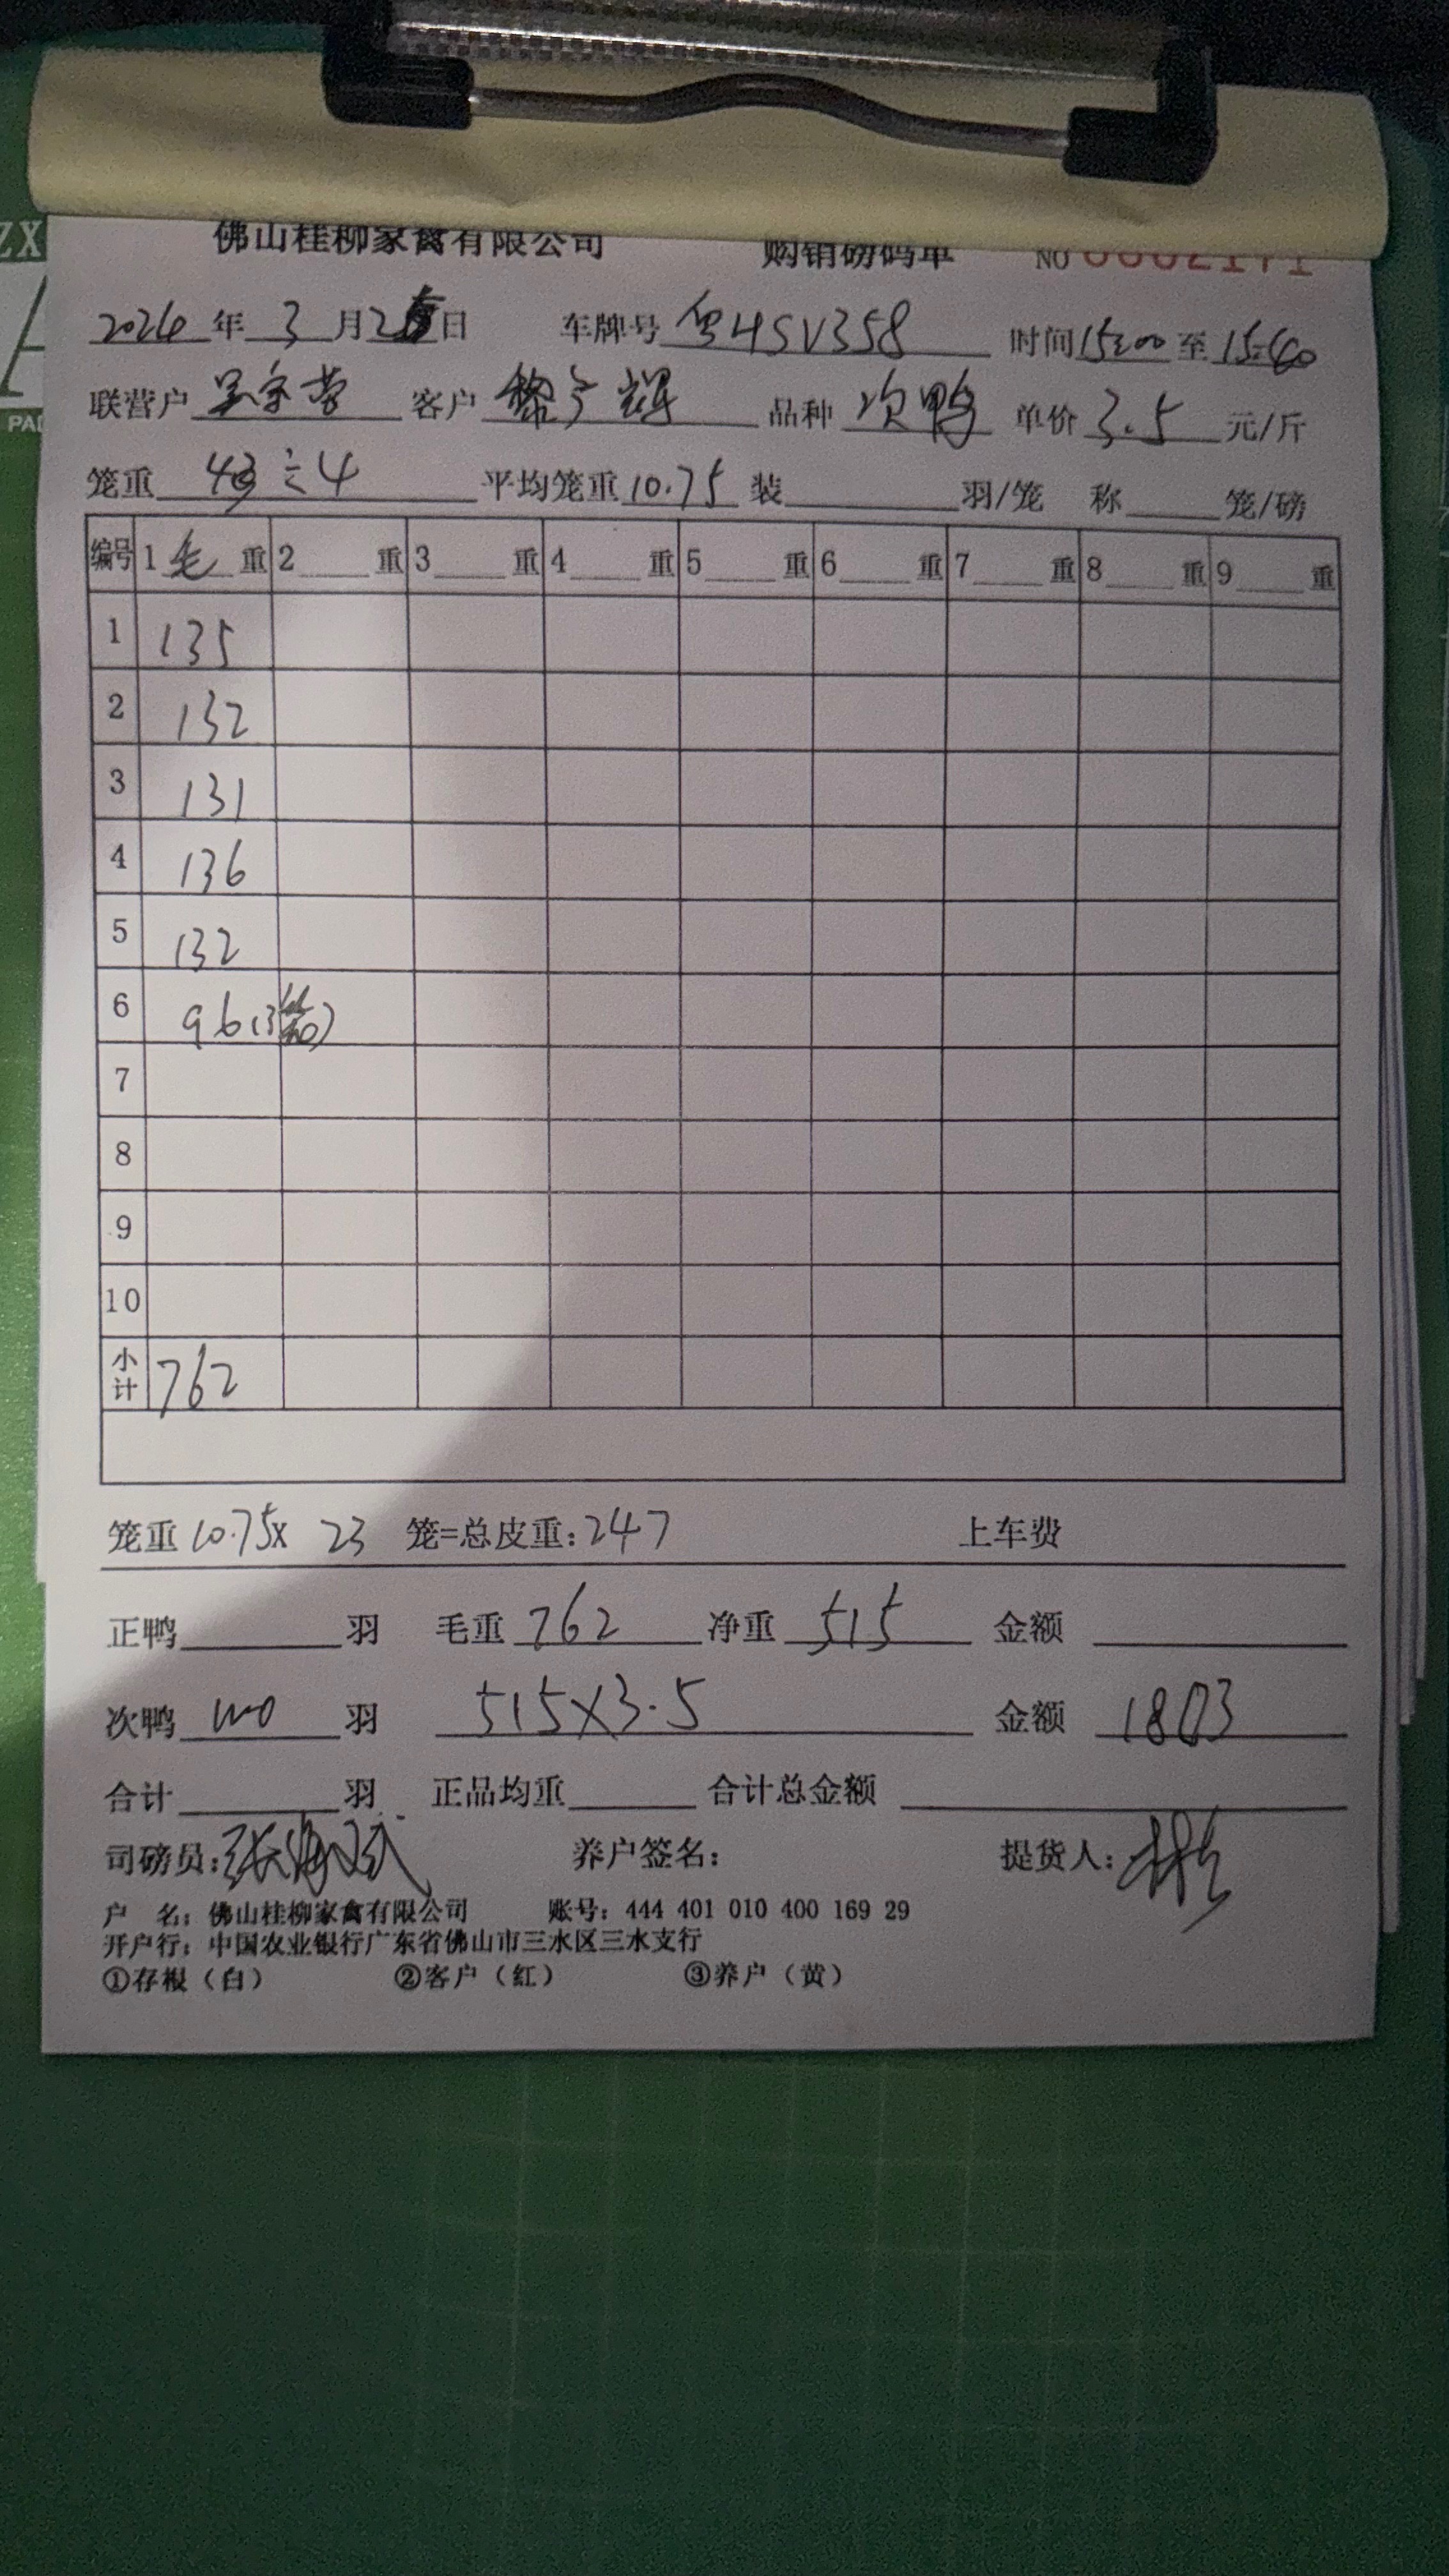 佛山桂柳家禽有限公司 购销磅码单 NO 0002171
2024年 3 月2 日 车牌号 粤H5V358 时间15:00 至 15:40
联营户 客户 黎广辉 品种 次鸭 单价 3.5 元/斤
笼重 43÷4 平均笼重 10.75 装 羽/笼 称 笼/磅
编号 1 毛 重 2 重 3 重 4 重 5 重 6 重 7 重 8 重 9 重
1 135
2 132
3 131
4 136
5 132
6 96(3笼)
7
8
9
10
小计 762
笼重 10.75x 23 笼=总皮重:247 上车费
正鸭 羽 毛重 762 净重 515 金额
次鸭 100 羽 515X3.5 金额 1803
合计 羽 正品均重 合计总金额
司磅员: 养户签名: 提货人:
户 名: 佛山桂柳家禽有限公司 账号: 444 401 010 400 169 29
开户行: 中国农业银行广东省佛山市三水区三水支行
①存根(白) ②客户(红) ③养户(黄)